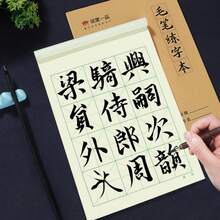 梁貟外
騎侍郎周
興嗣次韻
毛笔练字本